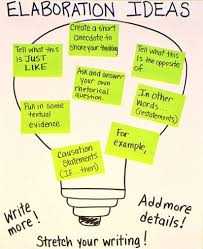 ELABORATION IDEAS
Create a short
anecdote to
share your thinking
Tell what this
is JUST
LIKE
Tell what this
is the opposite
of
Ask and answer
your own
rhetorical
question.
Pull in some
textual
evidence
In other
words...
(restatements)
For
example,
Causation
Statements
(If...then)
Write
more!
Add more
details!
Stretch your writing!